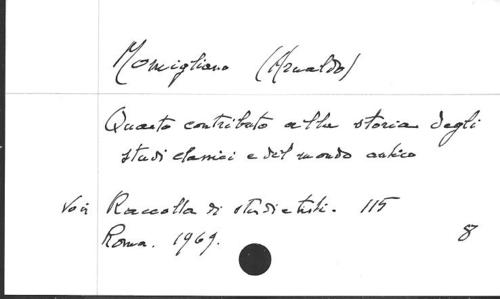 Momigliano (Arnaldo)
Quarto contributo alla storia degli
studi classici e del mondo antico
Voir Raccolta di studi e testi. 115
Roma. 1969. 8